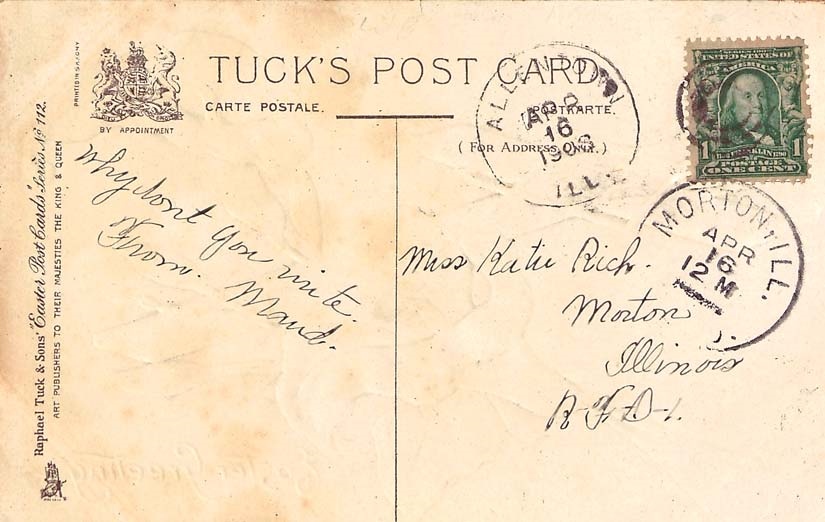 PRINTED IN SAXONY
BY APPOINTMENT
TUCK'S POST CARD
CARTE POSTALE.
POSTKARTE.
(FOR ADDRESS ONLY.)
Raphael Tuck & Sons' "Easter Post Cards" Series No 112.
ART PUBLISHERS TO THEIR MAJESTIES THE KING & QUEEN
Why dont you write.
From. Maud.
ALLENTOWN
APR
16
1908
ILL.
UNITED STATES OF
AMERICA
FRANKLIN
1 POSTAGE 1
ONE CENT
MORTON, ILL.
APR
16
12 M
Miss Katie Rich.
Morton
Illinois
R.F.D-1.
Easter Greetings